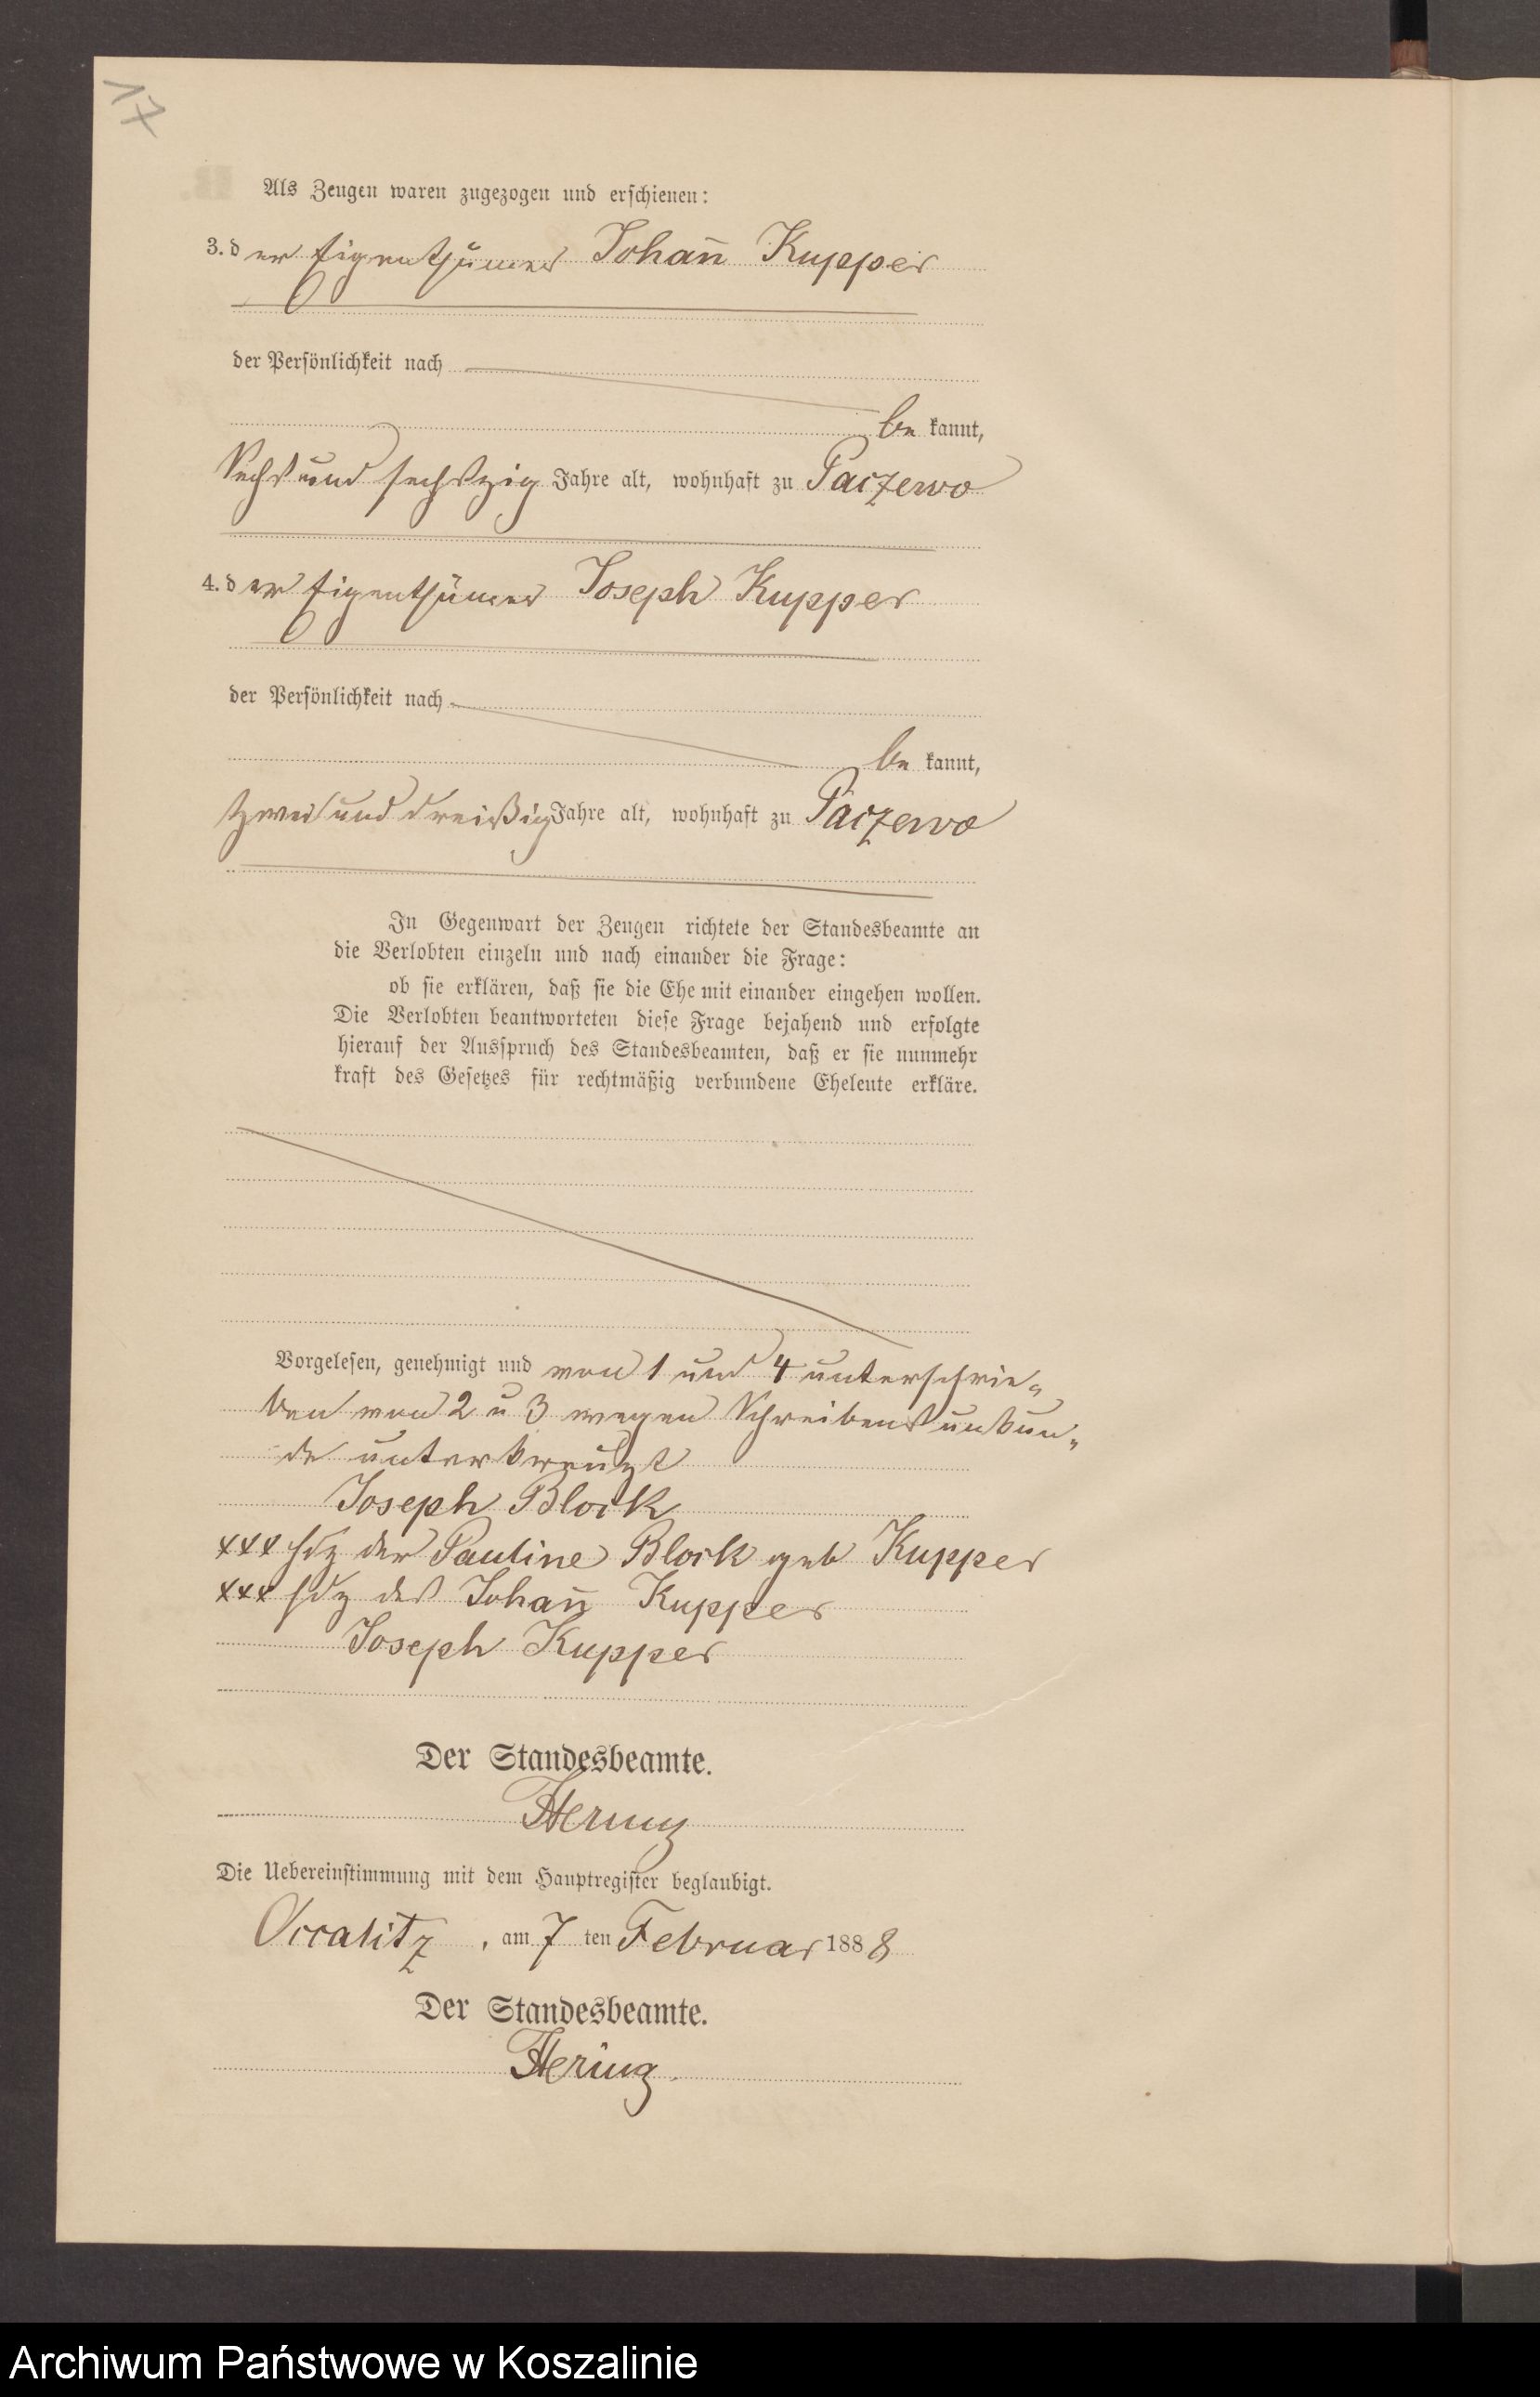 17
Als Zeugen waren zugezogen und erschienen:
3. d er Eigenthümer Johan̄ Kupper
der Persönlichkeit nach
be kannt,
Sechs und sechszig Jahre alt, wohnhaft zu Paczewo
4. d er Eigenthümer Joseph Kupper
der Persönlichkeit nach
be kannt,
Zwei und dreißig Jahre alt, wohnhaft zu Paczewo
In Gegenwart der Zeugen richtete der Standesbeamte an
die Verlobten einzeln und nach einander die Frage:
ob sie erklären, daß sie die Ehe mit einander eingehen wollen.
Die Verlobten beantworteten diese Frage bejahend und erfolgte
hierauf der Ausspruch des Standesbeamten, daß er sie nunmehr
kraft des Gesetzes für rechtmäßig verbundene Eheleute erkläre.
Vorgelesen, genehmigt und von 1 und 4 unterschrie„
ben von 2 u 3 wegen Schreibensunkun„
de unterkreuzt
Joseph Block
xxx Hdz der Pauline Block geb Kupper
xxx Hdz des Johan̄ Kupper
Joseph Kupper
Der Standesbeamte.
Hering
Die Uebereinstimmung mit dem Hauptregister beglaubigt.
Occalitz, am 7 ten Februar 1888
Der Standesbeamte.
Hering.
Archiwum Państwowe w Koszalinie